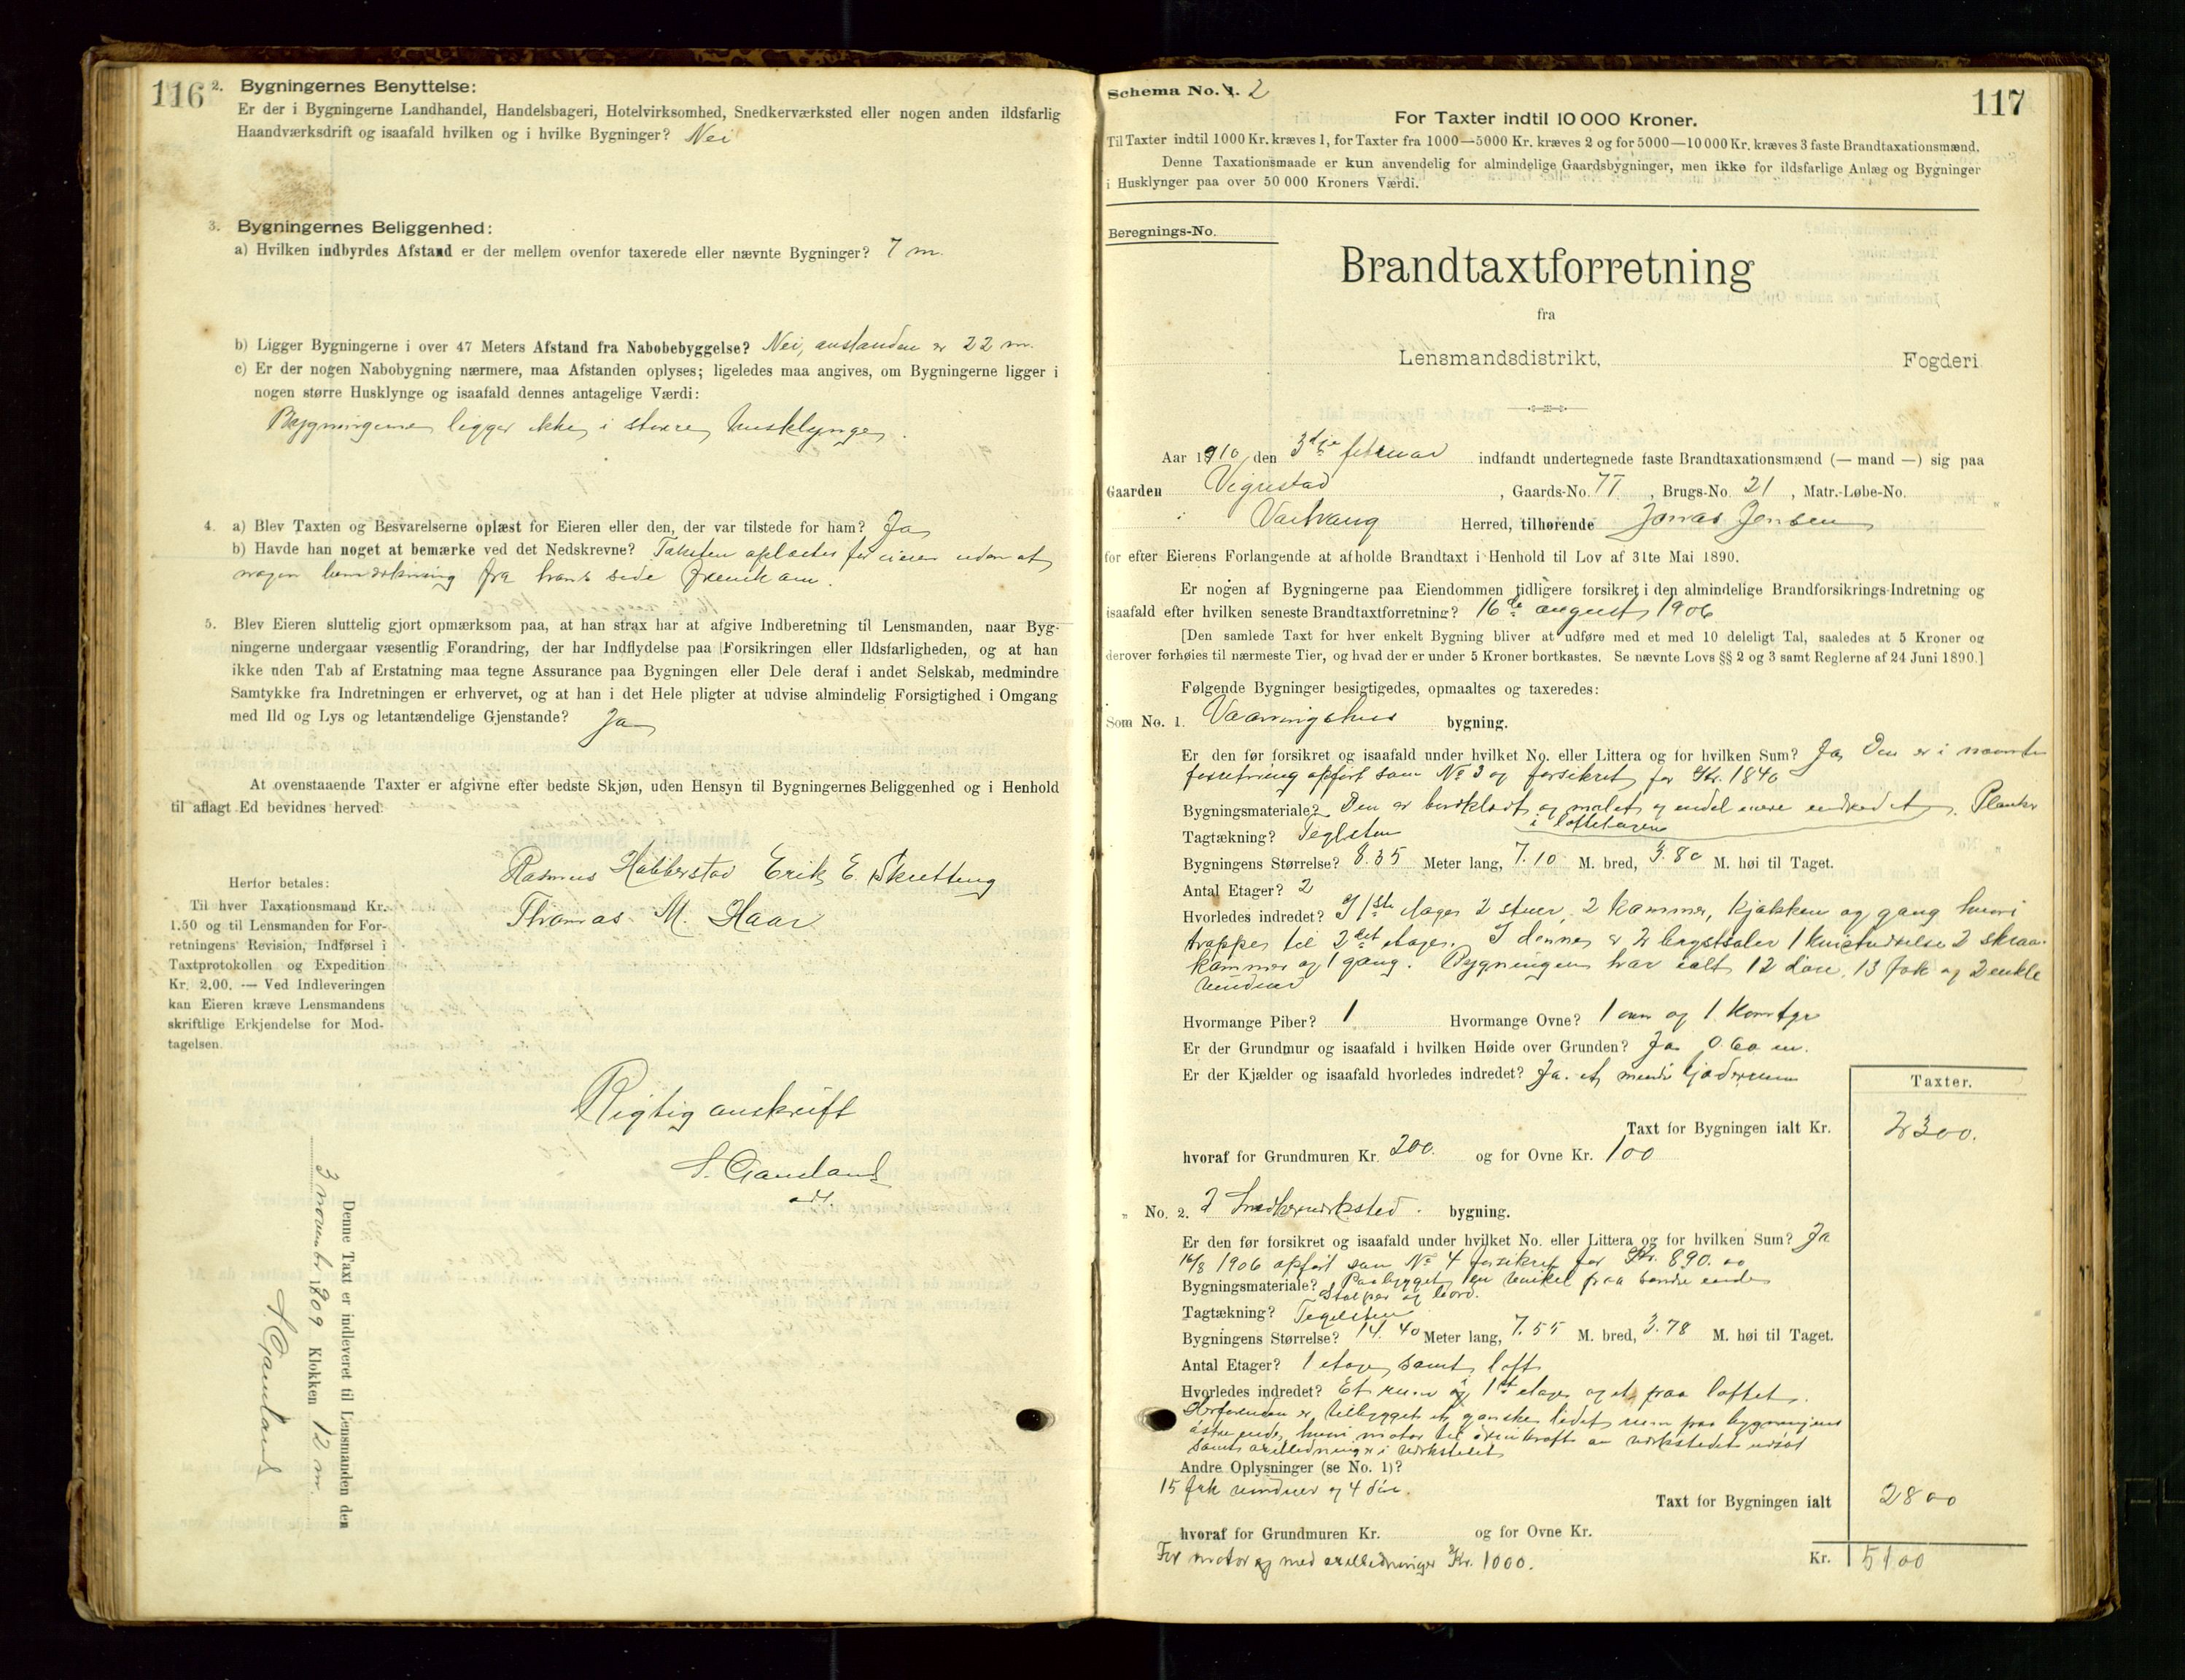 116
2. Bygningernes Benyttelse:
Er der i Bygningerne Landhandel, Handelsbageri, Hotelvirksomhed, Snedkerværksted eller nogen anden ildsfarlig
Haandværksdrift og isaafald hvilken og i hvilke Bygninger? Nei
3. Bygningernes Beliggenhed:
a) Hvilken indbyrdes Afstand er der mellem ovenfor taxerede eller nævnte Bygninger? 7 m.
b) Ligger Bygningerne i over 47 Meters Afstand fra Nabobebyggelse? Nei, avstanden er 22 m.
c) Er der nogen Nabobygning nærmere, maa Afstanden oplyses; ligeledes maa angives, om Bygningerne ligger i
nogen større Husklynge og isaafald dennes antagelige Værdi:
Bygningerne ligger ikke i større husklynge.
4. a) Blev Taxten og Besvarelserne oplæst for Eieren eller den, der var tilstede for ham? Ja
b) Havde han noget at bemærke ved det Nedskrevne? Taksten oplæstes for eieren uden at
nogen bemærkning fra hans side fremkom.
5. Blev Eieren sluttelig gjort opmærksom paa, at han strax har at afgive Indberetning til Lensmanden, naar Byg-
ningerne undergaar væsentlig Forandring, der har Indflydelse paa Forsikringen eller Ildsfarligheden, og at han
ikke uden Tab af Erstatning maa tegne Assurance paa Bygningen eller Dele deraf i andet Selskab, medmindre
Samtykke fra Indretningen er erhvervet, og at han i det Hele pligter at udvise almindelig Forsigtighed i Omgang
med Ild og Lys og letantændelige Gjenstande? Ja
At ovenstaaende Taxter er afgivne efter bedste Skjøn, uden Hensyn til Bygningernes Beliggenhed og i Henhold
til aflagt Ed bevidnes herved:
Rasmus Habberstad Erik E. Skretting
Thomas M. Haar
Herfor betales:
Til hver Taxationsmand Kr.
1.50 og til Lensmanden for For-
retningens Revision, Indførsel i
Taxtprotokollen og Expedition
Kr. 2.00. — Ved Indleveringen
kan Eieren kræve Lensmandens
skriftlige Erkjendelse for Mod-
tagelsen.
Rigtig avskrift
S. Gauland
Denne Taxt er indleveret til Lensmanden den
3 novembr 1909 Klokken 12 m.
S. Gauland
117
Schema No. 1. 2
For Taxter indtil 10 000 Kroner.
Til Taxter indtil 1000 Kr. kræves 1, for Taxter fra 1000—5000 Kr. kræves 2 og for 5000—10 000 Kr. kræves 3 faste Brandtaxationsmænd.
Denne Taxationsmaade er kun anvendelig for almindelige Gaardsbygninger, men ikke for ildsfarlige Anlæg og Bygninger
i Husklynger paa over 50 000 Kroners Værdi.
Beregnings-No.
Brandtaxtforretning
fra
Lensmandsdistrikt, Fogderi
Aar 1910, den 3dje februar indfandt undertegnede faste Brandtaxationsmænd (— mand —) sig paa
Gaarden Vigrestad, Gaards-No. 77, Brugs-No. 21, Matr.-Løbe-No.
i Varhaug Herred, tilhørende Jonas Jensen
for efter Eierens Forlangende at afholde Brandtaxt i Henhold til Lov af 31te Mai 1890.
Er nogen af Bygningerne paa Eiendommen tidligere forsikret i den almindelige Brandforsikrings-Indretning og
isaafald efter hvilken seneste Brandtaxtforretning? 16de august 1906
[Den samlede Taxt for hver enkelt Bygning bliver at udføre med et med 10 deleligt Tal, saaledes at 5 Kroner og
derover forhøies til nærmeste Tier, og hvad der er under 5 Kroner bortkastes. Se nævnte Lovs §§ 2 og 3 samt Reglerne af 24 Juni 1890.]
Følgende Bygninger besigtigedes, opmaaltes og taxeredes:
Som No. 1. Vaaningshus bygning.
Er den før forsikret og isaafald under hvilket No. eller Littera og for hvilken Sum? Ja Den er i nævnte
forretning opført som No 3 og forsikret for Kr. 1840
Bygningsmateriale? Den er bordklædt og malet og endel mere indredet i loftetagen. Planker
Tagtækning? Teglsten
Bygningens Størrelse? 8.35 Meter lang, 7.10 M. bred, 3.80 M. høi til Taget.
Antal Etager? 2
Hvorledes indredet? I 1ste etage 2 stuer, 2 kammer, kjøkken og gang hvori
trappe til 2det etage. I denne er 2 1 2 skraa-
kammer og 1 gang. Bygningen har ialt 12 døre, 13 fak og 2 enkle
vinduer
Hvormange Piber? 1 Hvormange Ovne? 1 ovn og 1 komfyr
Er der Grundmur og isaafald i hvilken Høide over Grunden? Ja 0.60 m.
Er der Kjælder og isaafald hvorledes indredet? Ja. et mindre
Taxter.
Taxt for Bygningen ialt Kr. 2300.
hvoraf for Grundmuren Kr. 200. og for Ovne Kr. 100
" No. 2. 2 Snedkerverksted. bygning.
Er den før forsikret og isaafald under hvilket No. eller Littera og for hvilken Sum? Ja
16/8 1906 opført som No 4 forsikret for Kr. 890.00
Bygningsmateriale? Paabygget en vinkel paa søndre ende
Stolper og bord.
Tagtækning? Tegelsten
Bygningens Størrelse? 14.40 Meter lang, 7.55 M. bred, 3.78 M. høi til Taget.
Antal Etager? 1 etage samt loft
Hvorledes indredet? Et rum i 1st etage og et paa loftet.
er tilbygget et ganske lidet rum paa bygningens
østre ende, hvori motor til drivkraft av verkstedet
samt i verkstedet
Andre Oplysninger (se No. 1)?
15 fak vinduer og 4 dør.
Taxt for Bygningen ialt 2800
hvoraf for Grundmuren Kr. og for Ovne Kr.
For motor og med axelledninger Kr. 1000.
Kr. 5100